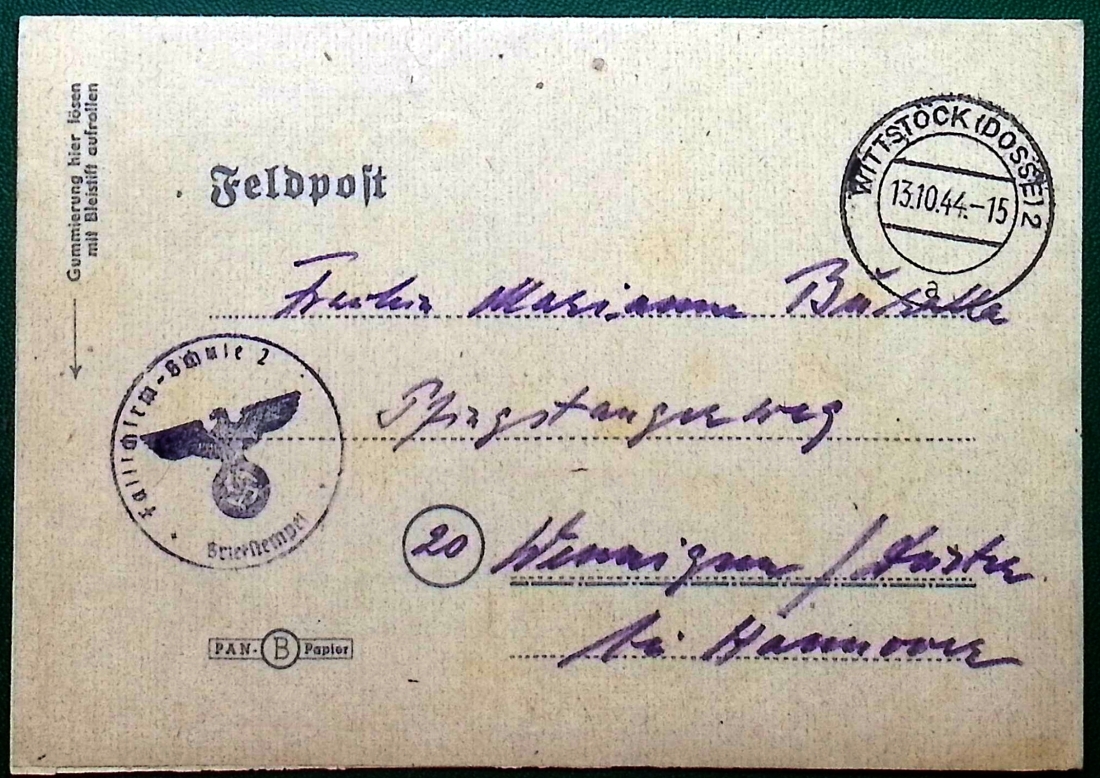 Gummierung hier lösen
mit Bleistift aufrollen
Feldpost
WITTSTOCK (DOSSE) 2
13.10.44.-15
a
Fräulein Marianne
Fallschirm-Schule 2
Briefstempel
Pfingstangerweg
20 Wennigsen / Deister
bei Hannover
PAN-B Papier